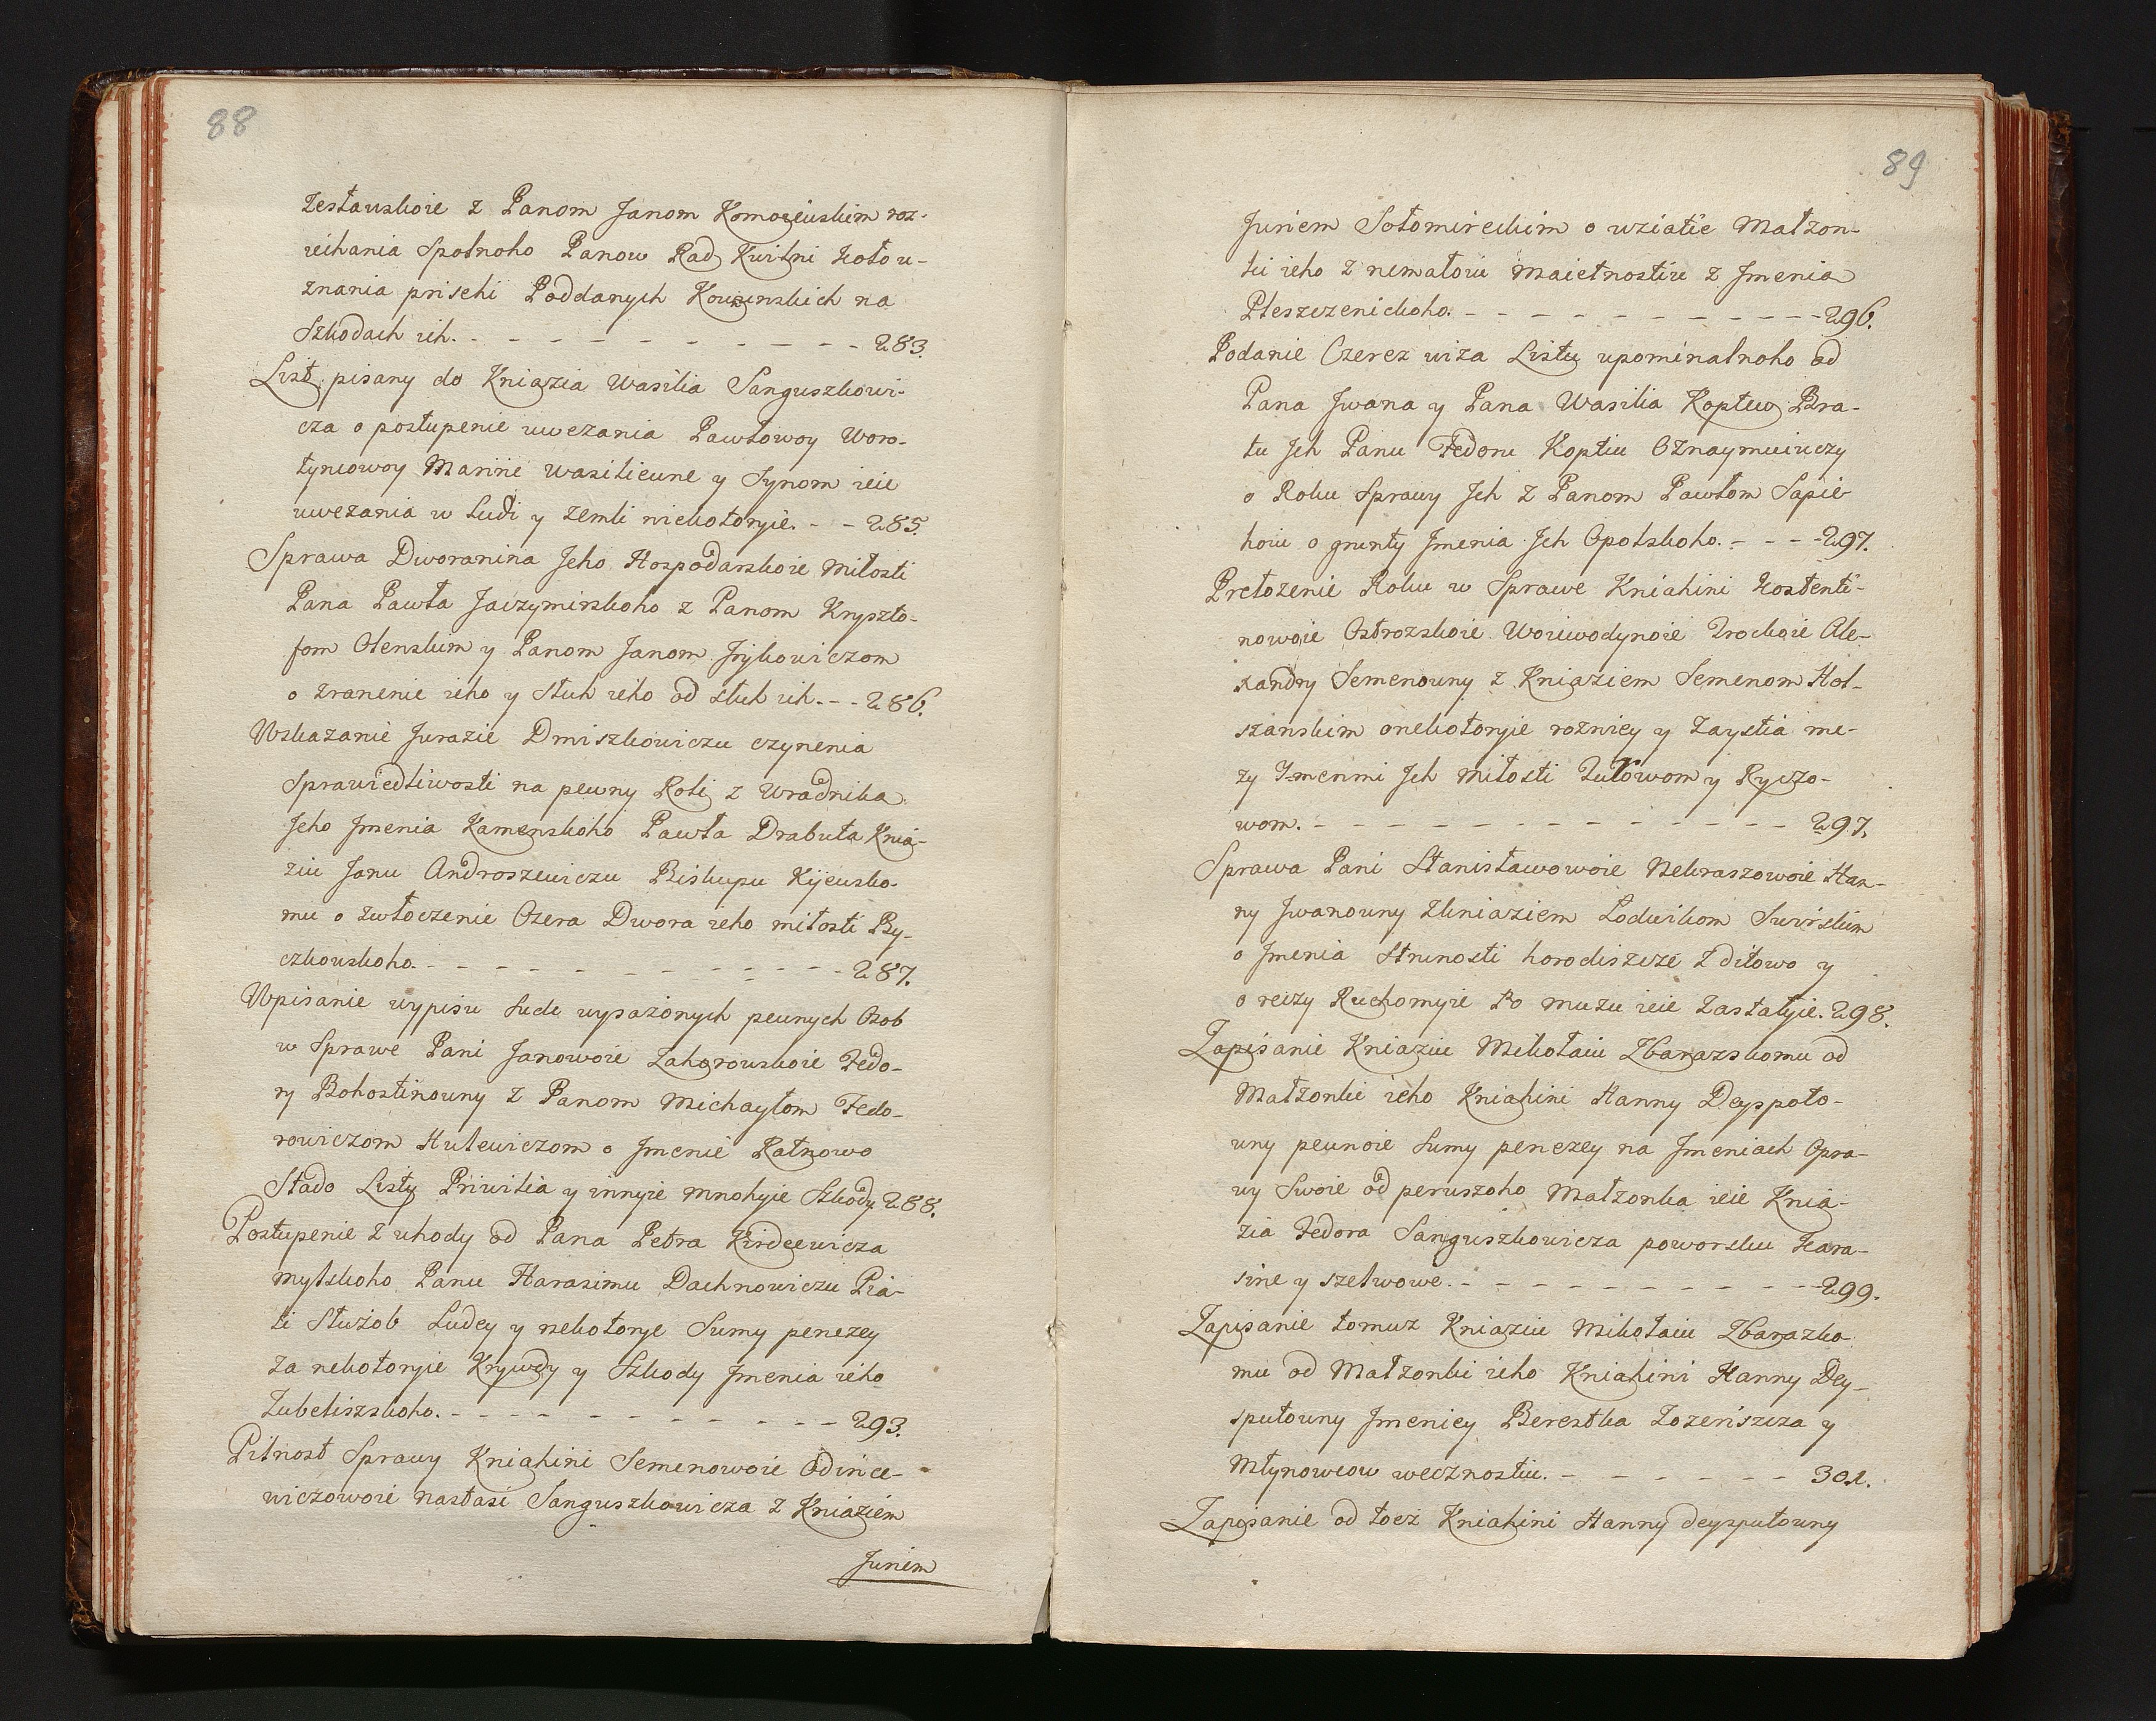 88
zestawskoie z Panom Janom Komoieuskim roz-
iеihania spolnoho Panow Rad Kwitni hotow-
znania prisehi Poddanych Kowenskich na
Szkodach ich. - - - - - - - - - - - 283.
List pisany do Kniazia Wasilia Sanguszkowi-
cza o postupenie uwezania Pawłowoy Woro-
tyncowoy Marine Wasiliewne y Synom ieie
uwezania w Ludi y zemli niekotoryie. - - 285.
Sprawa Dworanina Jeho Hospodarskoie Miłosti
Pana Pawła Jaczymirskoho z Panom Kryszto-
fom Olenskim y Panom Janom Jrzykowiczom
o zranenie ieho y słuh ieho od słuh ich. - - 286.
Wskazanie Jurazie Dmiszkowiczu czynenia
Sprawiedliwosti na pewny Roki z Wradnika
Jeho Jmenia Kamenskoho Pawła Drabuta Knia-
ziu Janu Androszewiczu Biskupu Kijewsko-
mu o zwłoczenie Ozera Dwora ieho miłosti By-
czkowskoho. - - - - - - - - - - - 287.
Wpisanie wypisu Sudu wysażonych pewnych Osob
w Sprawe Pani Janowoie Zahorowskoie Fedo-
ry Bohostinowny z Panom Michayłom Fedo-
rowiczom Hulewiczom o Jmenie Ratnowo
Stado Listy Priwilia y innyie mnohyie Szkody 288.
Postupenie z uhody od Pana Petra Kirdeewicza
Mylskoho Panu Harasimu Dachnowiczu Pia-
ti Służob Ludey y nekotorye Sumy penezey
za nekotoryie Krywdy y Szkody Jmenia ieho
Zubeliszskoho. - - - - - - - - - - - 293.
Pilnost Sprawy Kniahini Semenowoie Odince-
wiczowoie nastasi Sanguszkowicza z Kniaziem
Juriem
89
Juriem Sołomireckim o wziatie Małzon-
ki ieho z nemałoiu maietnostiu z Jmenia
Pleszczenickoho. - - - - - - - - - - 296.
Podanie Czerez wiza Listu upominalnoho od
Pana Jwana y Pana Wasilia Koptew Bra-
tu Jch Panu Fedoru Koptiu Oznaymuiuczy
o Roku Sprawy Jch z Panom Pawłom Sapie-
hoiu o grunty Jmenia Jch Opolskoho. - - - 297.
Prełozenie Roku w Sprawe Kniahini Kostenti-
nowoie Ostrozskoie Woiewodynoie Trockoie Ale-
xandry Semenowny z Kniaziem Semenom Hol-
szanskim o nekotoryie roznicy y zaystia me-
zy Jmenmi Jch Miłosti Turowom y Ryczo-
wom. - - - - - - - - - - - - - 297.
Sprawa Pani Stanisławowoie Nekraszowoie Han-
ny Jwanowny z kniaziem Lodwikom Swirskim
o Jmenia Strunosti horodiszcze Zditowo y
o reczy Ruchomyie Po muzu ieie Zastałyie. 298.
Zapisanie Kniaziu Mikołaiu Zbarazskomu od
Małzonki ieho Kniahini Hanny Deyspoto-
wny pewnoie Sumy penezey na Jmeniach Opra-
wy Swoie od perwszoho Małzonka ieie Knia-
zia Fedora Sanguszkowicza poworsku Kara-
sine y szelwowe. - - - - - - - - - - 299.
Zapisanie tomuz Kniaziu Mikołaiu Zbarazko-
mu od Małzonki ieho Kniahini Hanny Dey-
sputowny Jmeniey Berestka Lozeniszcza y
Młynowcow wecznostiu. - - - - - - - 301.
Zapisanie od toeż Kniahini Hanny deysputowny